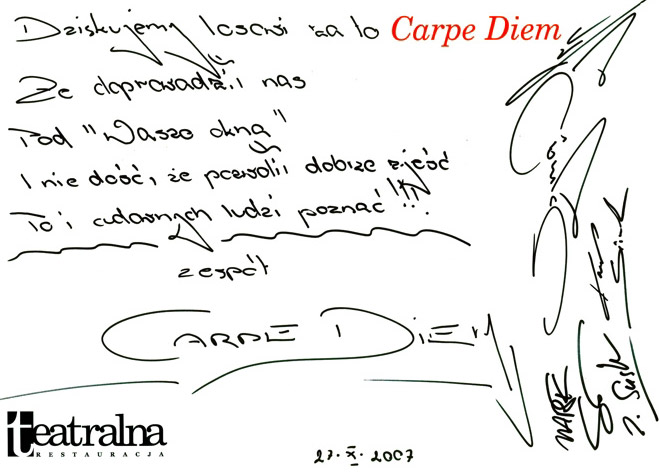 Dziękujemy losowi za to Carpe Diem
Że doprowadził nas
Pod "Wasze okna"
I nie dość, że pozwolił dobrze zjeść
To i cudownych ludzi poznać!!!
zespół
CARPE DIEM
MAREK
teatralna
RESTAURACJA
27.X.2007